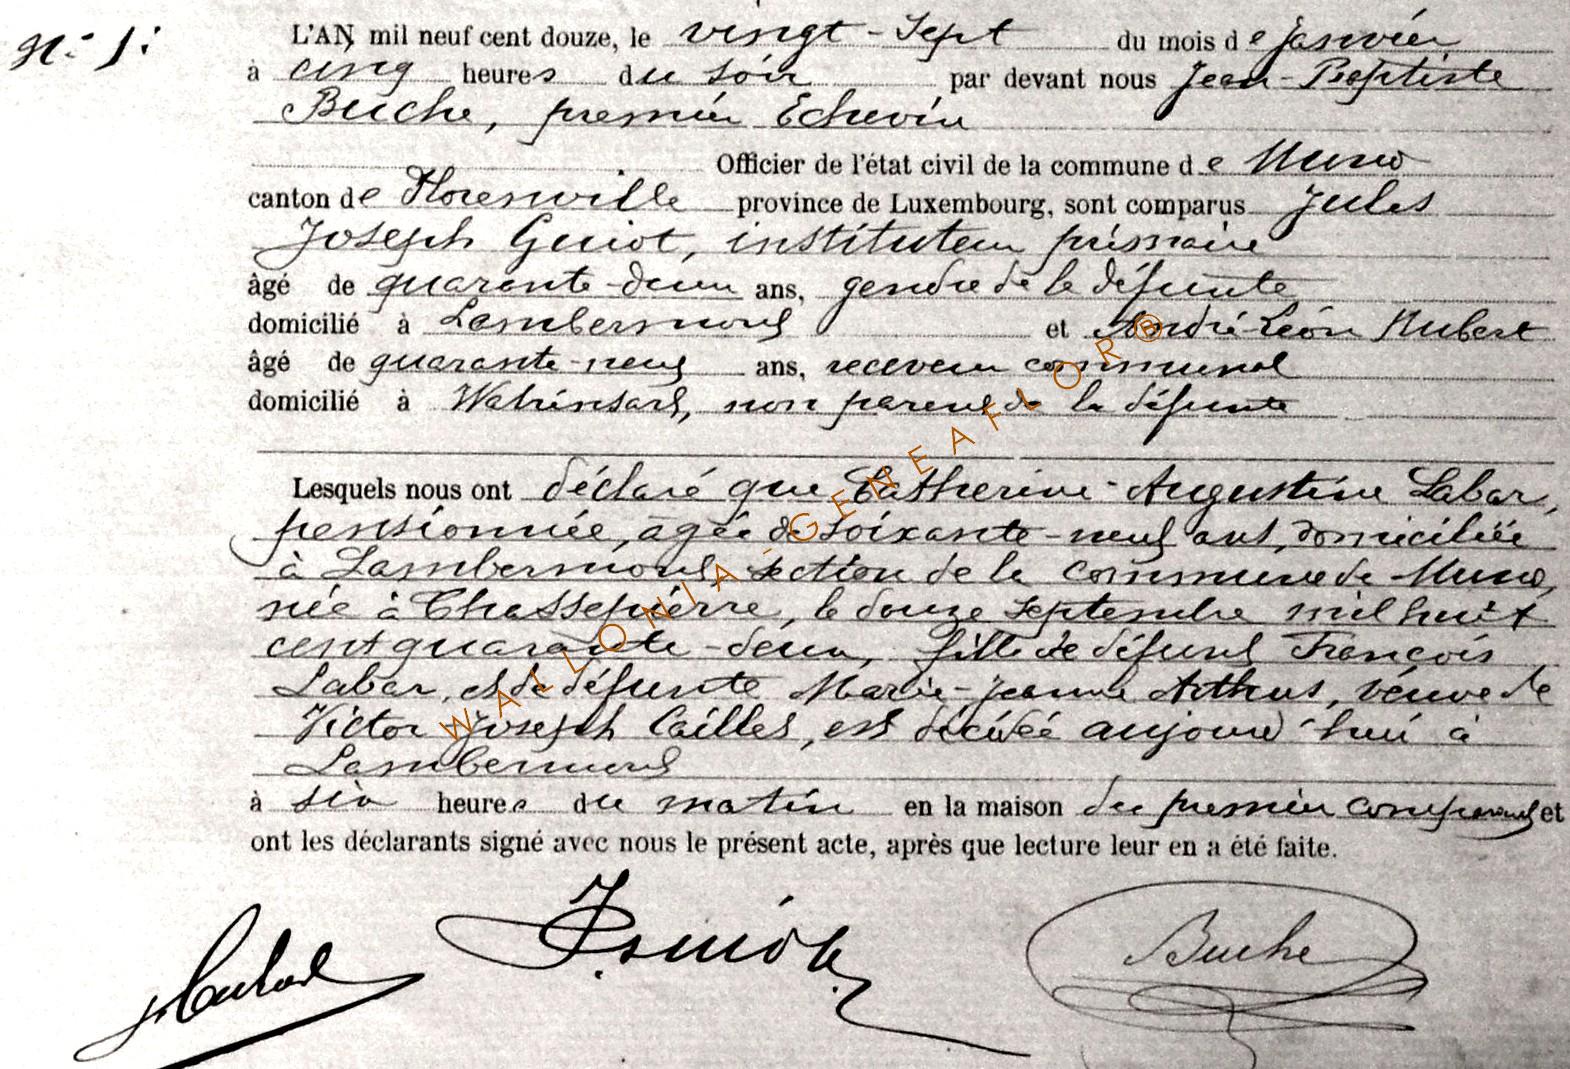 N° 5:
L'AN mil neuf cent douze, le vingt-sept du mois de janvier
à cinq heures du soir par devant nous Jean-Baptiste
Buche, premier Echevin
Officier de l'état civil de la commune de Muno
canton de Florenville province de Luxembourg, sont comparus Jules
Joseph Guiot, instituteur primaire
âgé de quarante-deux ans, gendre de la défunte
domicilié à Lambermont et André Léon Hubert
âgé de quarante-neuf ans, receveur communal
domicilié à Watrinsart, non parent de la défunte
Lesquels nous ont déclaré que Catherine-Augustine Labar,
pensionnée, agée de soixante-neuf ans, domiciliée
à Lambermont, section de la commune de Muno,
née à Chassepierre, le douze septembre mil huit
cent quarante-deux, fille de défunt François
Labar, et de défunte Marie-Jeanne Arthus, veuve de
Victor Joseph Cailles, est décédée aujourd'hui à
Lambermont
à six heures du matin en la maison du premier comparant et
ont les déclarants signé avec nous le présent acte, après que lecture leur en a été faite.
Buche
WALLONIA-GENEAFLOR®